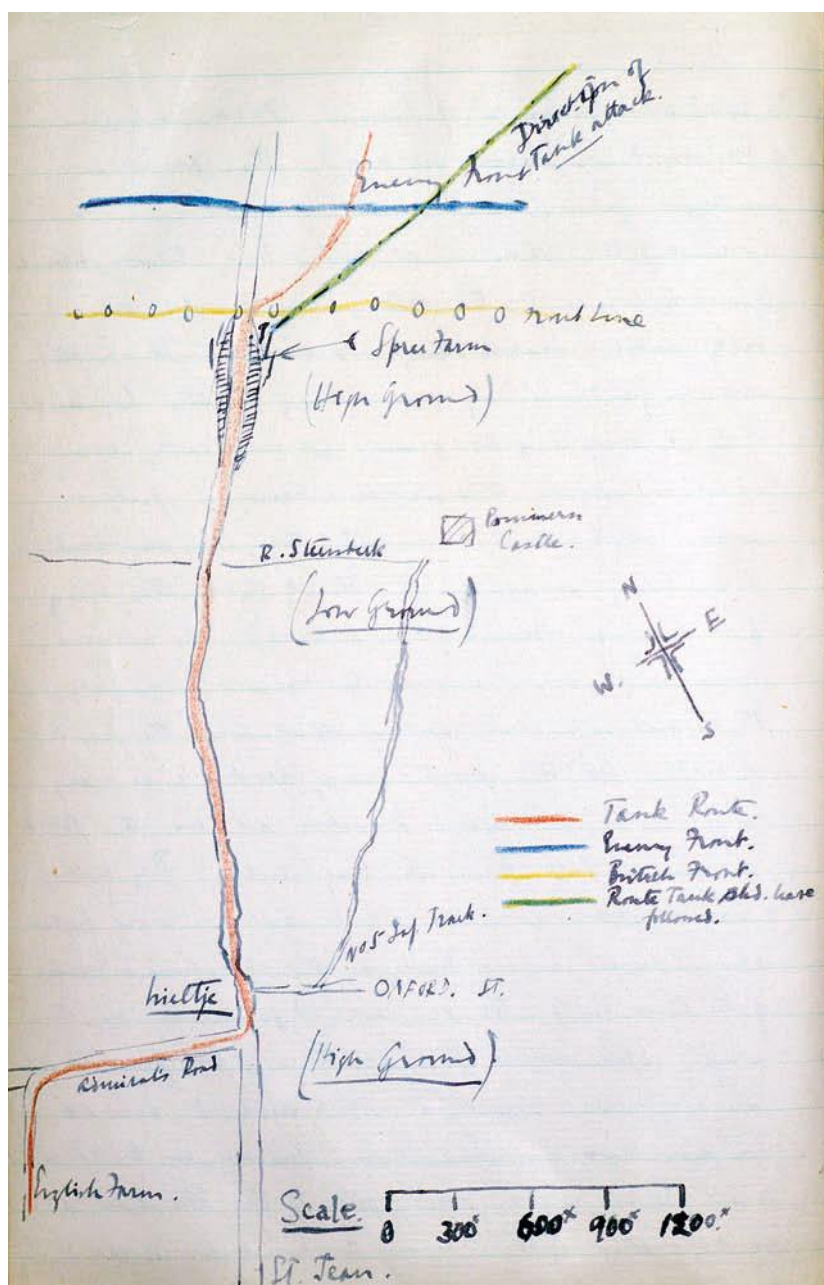 Direction of
Tank attack.
Enemy Front
Front Line
Spree Farm
(High Ground)
Pommern
Castle.
R. Steenbeek
(Low Ground)
N
E
W.
S
Tank Route.
Enemy Front.
British Front.
Route Tank shd. have
followed.
No 5 Inf Track.
Wieltje
OXFORD. ST.
(High Ground)
Admirals Road
English Farm.
Scale.
0 300x 600x 900x 1200.x
St. Jean.